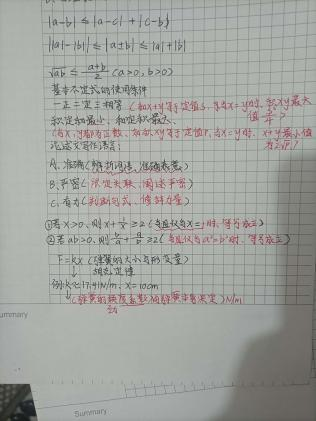 |a-b| ≤ |a-c| + |c-b|
||a|-|b|| ≤ |a±b| ≤ |a|+|b|
√ab ≤ a+b/2 (a>0, b>0)
基本不定式的使用条件
一正二定三相等 (和x+y等于定值S, 当x=y时, 积xy最大值
积定和最小, 和定积最大
x,y都为正数, 积xy等于定值P, 当x=y时, x+y最小值为2√P)
论述文写作语言:
A. 准确(
B. 严密(
C. 有力(判断句式、修辞力量)
①若x>0, 则x+1/x≥2 (当且仅当x=1时, 等号成立)
②若ab>0, 则b/a+a/b≥2 (当且仅当a²=b²时, 等号成立)
F=kx (弹簧的大小与形变量)
胡克定律
例: k≈17.41N/m, x=10cm
(弹簧的劲度系数由弹簧本身决定) N/m
劲
Summary
Summary